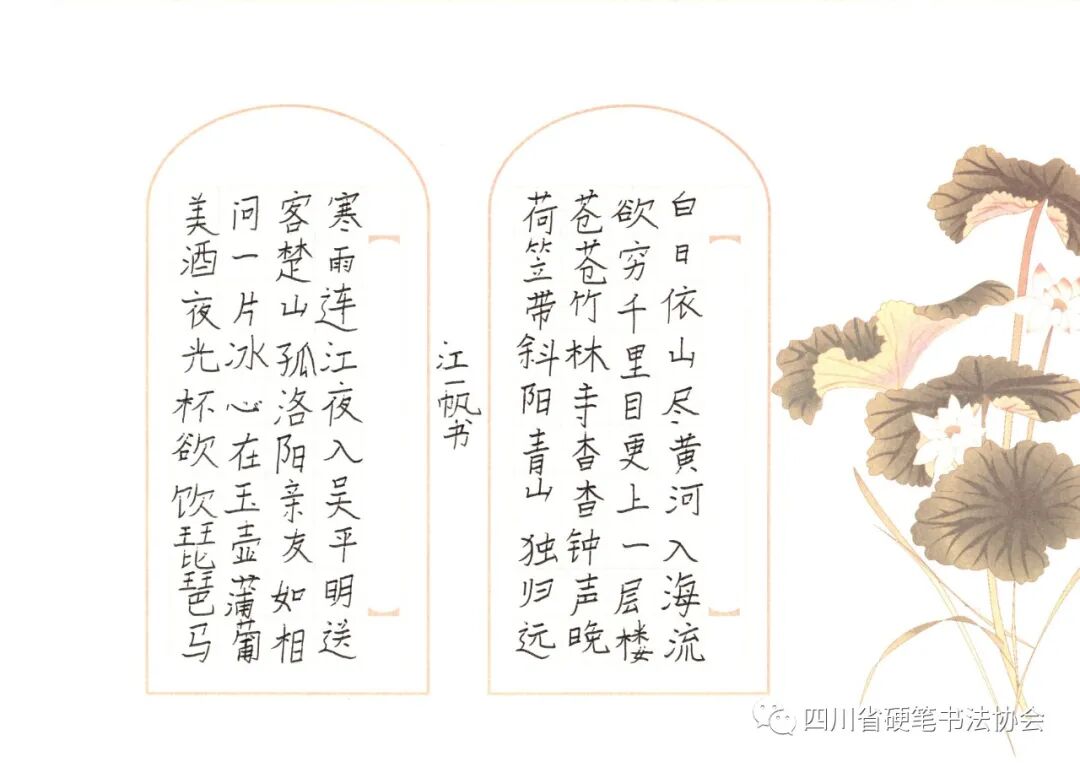 白日依山尽黄河入海流
欲穷千里目更上一层楼
苍苍竹林寺杳杳钟声晚
荷笠带斜阳青山独归远
寒雨连江夜入吴平明送
客楚山孤洛阳亲友如相
问一片冰心在玉壶蒲葡
美酒夜光杯欲饮琵琶马
江一帆书
四川省硬笔书法协会